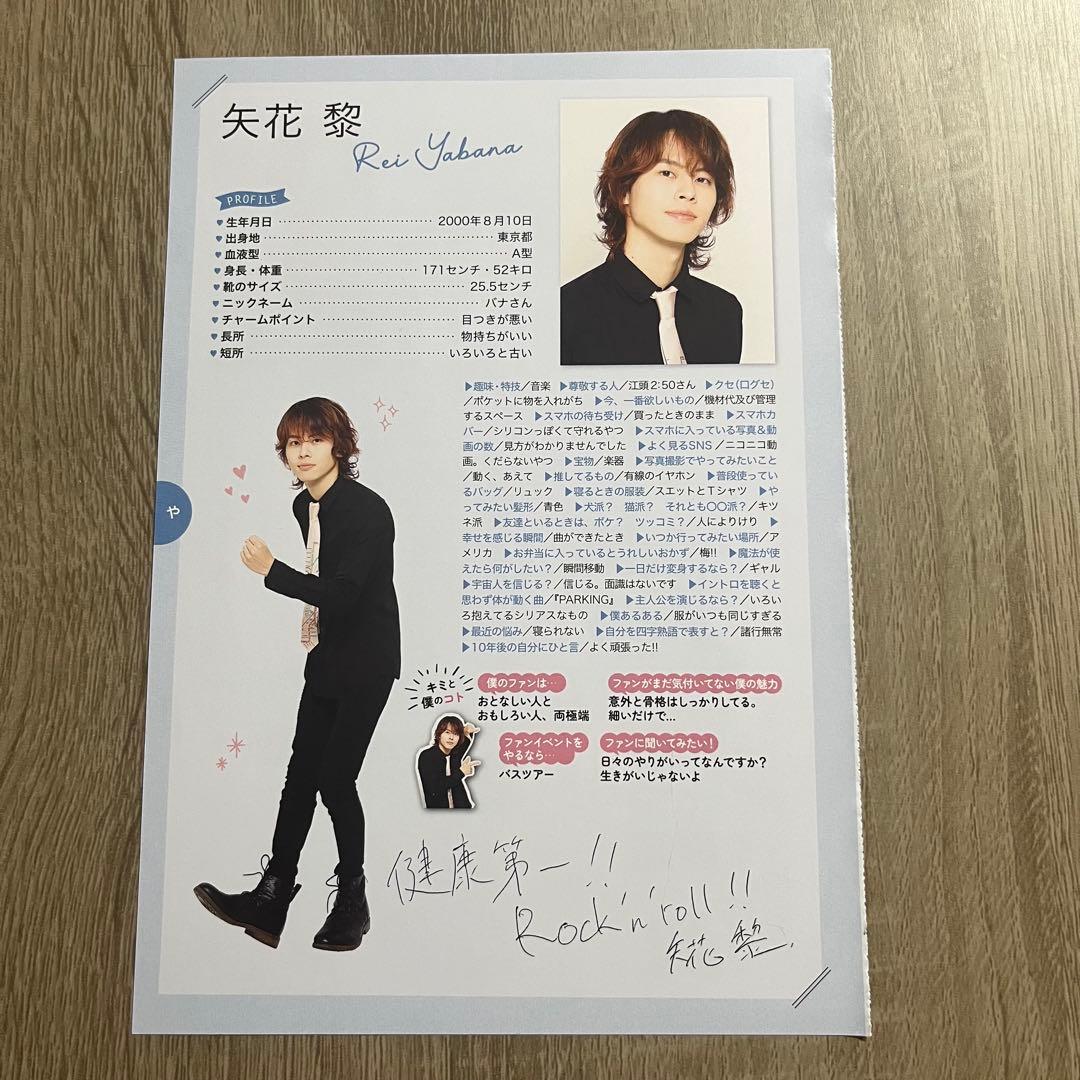 矢花 黎
Rei Yabana
PROFILE
♥生年月日 2000年8月10日
♥出身地 東京都
♥血液型 A型
♥身長・体重 171センチ・52キロ
♥靴のサイズ 25.5センチ
♥ニックネーム バナさん
♥チャームポイント 目つきが悪い
♥長所 物持ちがいい
♥短所 いろいろと古い
▶趣味・特技／音楽 ▶尊敬する人／江頭2:50さん ▶クセ(口グセ)
／ポケットに物を入れがち ▶今、一番欲しいもの／機材代及び管理
するスペース ▶スマホの待ち受け／買ったときのまま ▶スマホカ
バー／シリコンっぽくて守れるやつ ▶スマホに入っている写真＆動
画の数／見方がわかりませんでした ▶よく見るSNS／ニコニコ動
画。くだらないやつ ▶宝物／楽器 ▶写真撮影でやってみたいこと
／動く、あえて ▶推してるもの／有線のイヤホン ▶普段使ってい
るバッグ／リュック ▶寝るときの服装／スエットとTシャツ ▶や
ってみたい髪形／青色 ▶犬派？ 猫派？ それとも〇〇派？／キツ
ネ派 ▶友達といるときは、ボケ？ ツッコミ？／人によりけり ▶
幸せを感じる瞬間／曲ができたとき ▶いつか行ってみたい場所／ア
メリカ ▶お弁当に入っているとうれしいおかず／梅!! ▶魔法が使
えたら何がしたい？／瞬間移動 ▶一日だけ変身するなら？／ギャル
▶宇宙人を信じる？／信じる。面識はないです ▶イントロを聴くと
思わず体が動く曲／『PARKING』 ▶主人公を演じるなら？／いろい
ろ抱えてるシリアスなもの ▶僕あるある／服がいつも同じすぎる
▶最近の悩み／寝られない ▶自分を四字熟語で表すと？／諸行無常
▶10年後の自分にひと言／よく頑張った!!
キミと
僕のコト
僕のファンは…
おとなしい人と
おもしろい人、両極端
ファンがまだ気付いてない僕の魅力
意外と骨格はしっかりしてる。
細いだけで…
ファンイベントを
やるなら…
バスツアー
ファンに聞いてみたい！
日々のやりがいってなんですか？
生きがいじゃないよ
や
健康第一!!
Rock'n'roll!!
矢花 黎.